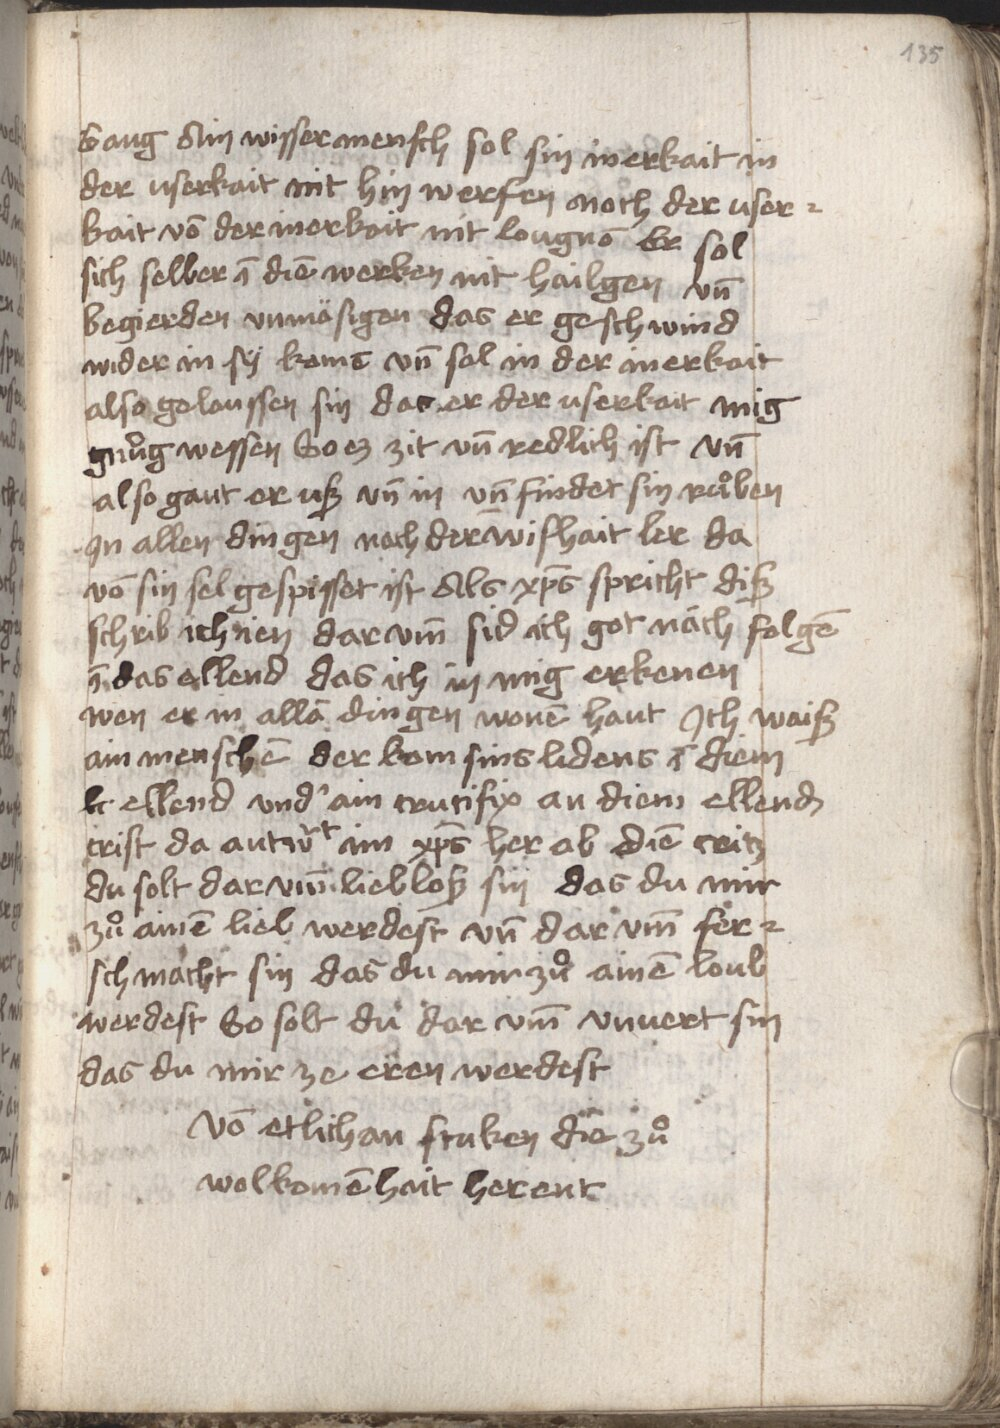 135
gang Ain wisser mensch sol sin inerkait in
der userkait nit hin werfen noch der user⸗
kait vō der inerkait nit lougnē Er sol
sich selber ī diē werken nit hailgen vn̄
begierden vnmäsigen das er geschwind
wider in sÿ koms vn̄ sol in der inerkait
also gelaussen sin das er der userkait mig
gnůg wessen So es zit vn̄ redlich ist vn̄
also gaut er uß vn̄ in vn̄ findet sin růben
In allen dingen noch der wishait ler da
vō sin sel gespisset ist Als xp̄s spricht diß
schrib ich ien dar vm̄ sid ich got näch folgē
ī das ellend das ich in mig erkenen
wen er in allā dingen wonē haut Ich waiß
ain menschē der kom sins lidens ī diem
ellend und ain crucifix an diem ellend
crist da antwůt im xp̄s her ab diē critz
du solt dar vm̄ lieblos sin das du mir
zů ainē lieb werdest vn̄ dar vm̄ fer⸗
schmächt sin das du mir zů ainē loub
werdest So solt du dar vm̄ vnuert sin
das du mir ze eren werdest
Vō etlichan stuken die zů
wolkomēhait herent